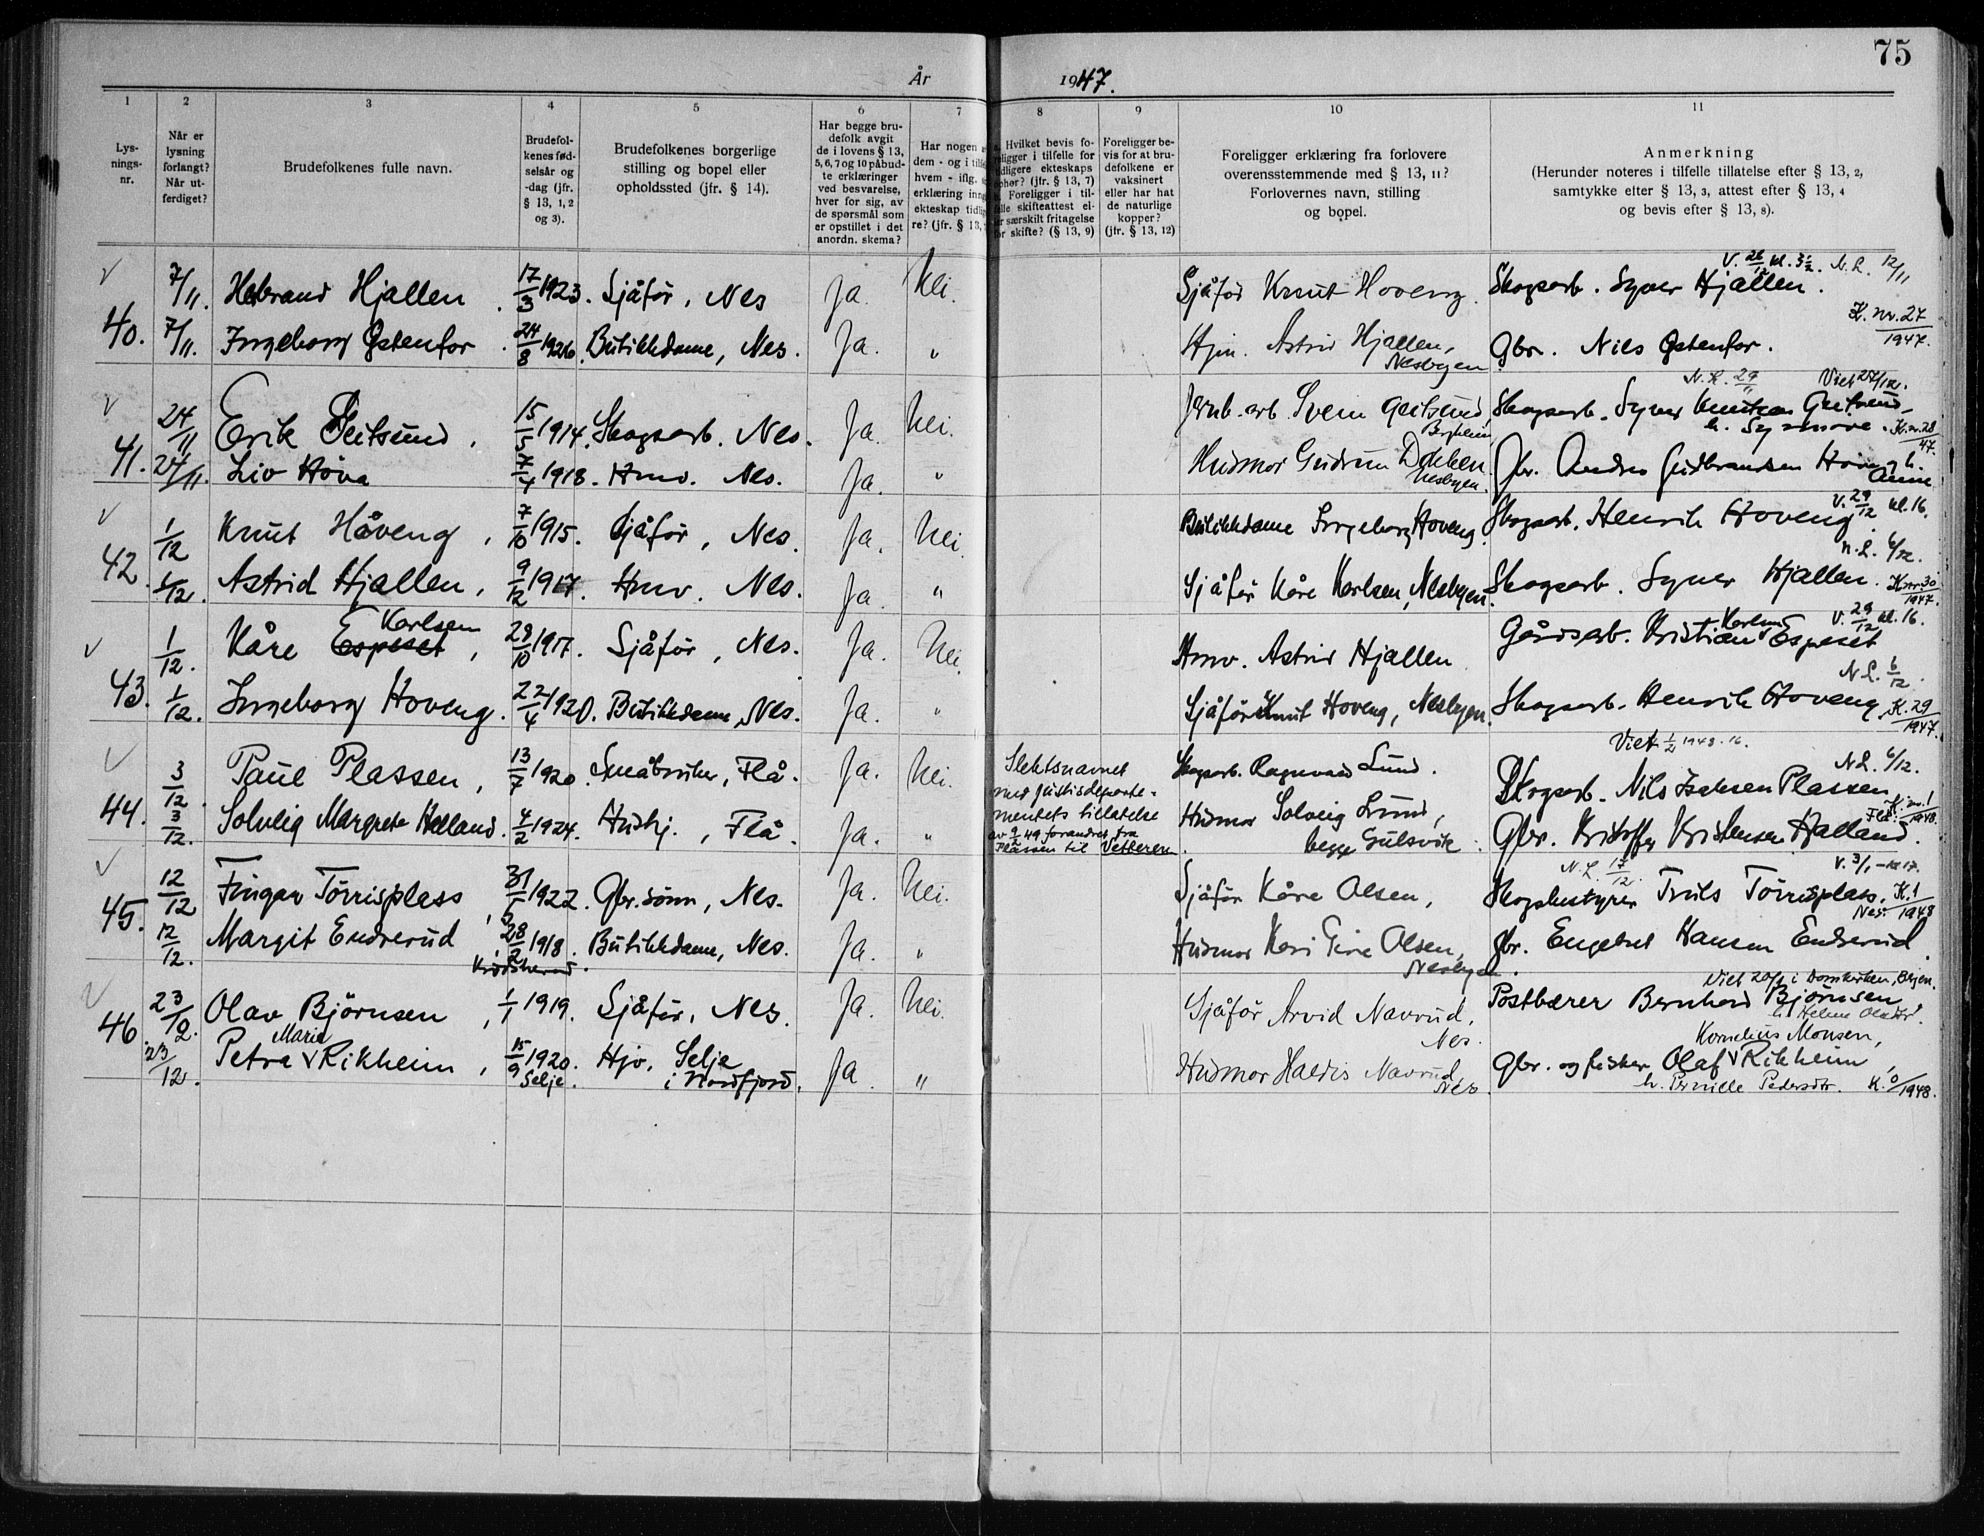 75
År 1947.
1 2 3 4 5 6 7 8 9 10 11
Lys-
nings-
nr.
Når er
lysning
forlangt?
Når ut-
ferdiget?
Brudefolkenes fulle navn.
Brudefol-
kenes fød-
selsår og
-dag (jfr.
§ 13, 1, 2
og 3).
Brudefolkenes borgerlige
stilling og bopel eller
opholdssted (jfr. § 14).
Har begge bru-
defolk avgit
de i lovens § 13,
5, 6, 7 og 10 påbud-
te erklæringer
ved besvarelse,
hver for sig, av
de spørsmål som
er opstillet i det
anordn. skema?
Har nogen
dem - og i
hvem - iflg.
erklæring
ekteskap
re? (jfr. § 13,
Hvilket bevis fo-
religger i tilfelle for
tidligere ekteskaps
ophør? (jfr. § 13, 7)
Foreligger i til-
felle skifteattest el-
ler særskilt fritagelse
for skifte? (§ 13, 9)
Foreligger be-
vis for at bru-
defolkene er
vaksinert
eller har hat
de naturlige
kopper?
(jfr. § 13, 12)
Foreligger erklæring fra forlovere
overensstemmende med § 13, 11?
Forlovernes navn, stilling
og bopel.
Anmerkning
(Herunder noteres i tilfelle tillatelse efter § 13, 2,
samtykke efter § 13, 3, attest efter § 13, 4
og bevis efter § 13, 8).
V. 26/12 kl. 3½. N.L. 12/11
7/11. Hebrand Hjallen . 17/3 1923. Sjåför, Nes Ja. Nei. Sjåför Knut Hoveng. Skogsarb. Syver Hjallen.
K. nr. 27/1947.
40. 7/11. Ingeborg Östenfor . 24/8 1926. Butikkdame, Nes. Ja. " Hjm. Astrid Hjallen, Nesbyen Gbr. Nils Östenfor.
N.L. 29/11 Viet 27/12.
24/11 Erik Geitsund, 15/5 1914. Skogsarb. Nes. Ja. Nei. Jernb.arb. Svein Geitsund, Skogsarb. Syver Knutsen Geitsund
h. Synnøve. K.nr. 28/47.
41. 24/11. Liv Höva 7/4 1918. Hmv. Nes. Ja. " Husmor Gudrun Dokken. Nesbyen. Gbr. Andres Gudbrandsen Höva, h. Anne
V. 29/12 kl. 16.
1/12 Knut Håveng, 7/10 1915. Sjåför, Nes. Ja. Nei. Butikkdame Ingeborg Hoveng. Skogsarb. Henrik Hoveng
N.L. 6/12.
42. 1/12. Astrid Hjallen, 9/12 1917. Hmv. Nes. Ja. " Sjåför Kåre Karlsen, Nesbyen. Skogsarb. Syver Hjallen. K.nr. 30/1947.
V. 29/12 kl. 16.
1/12. Kåre Espeset Karlsen, 28/10 1917. Sjåför, Nes. Ja. Nei. Hmv. Astrid Hjallen Gårdsarb. Kristian Karlsen Espeset
N.L. 6/12.
43. 1/12. Ingeborg Hoveng. 22/4 1920. Butikkdame, Nes. Ja. " Sjåför Knut Hoveng, Nesbyen. Skogsarb. Henrik Hoveng K. 29/1947.
Viet 1/2 1948. 16.
N.L. 6/12.
3/12. Paul Plassen, 13/7 1920. Småbruker, Flå. Ja. Nei. Slektsnavnet
med Justisdeparte-
mentets tillatelse
av 9/2 49 forandret fra
Plassen til Vetteren
Skogsarb. Ragnvald Lund. Skogsarb. Nils Isaksen Plassen
K. nr. 1 Flå. 1948.
44. 3/12. Solveig Margrete Halland. 4/2 1924. Hushj., Flå. Ja. " Husmor Solveig Lund, begge Gulsvik. Gbr. Kristoffer Kristensen Halland.
N.L. 17/12. V. 3/1 - kl 17.
12/12 Fingar Törrisplass, 31/5 1922. Gbr.sönn, Nes. Ja. Nei. Sjåför Kåre Olsen, Skogbestyrer Truls Törrisplass. K. 1 Nes. 1948
45. 12/12. Margit Endrerud 28/2 1918. Butikkdame, Nes. Ja. " Husmor Kari Gire Olsen, Nesbyen. Gbr. Engebret Hansen Endrerud.
Krødsherad.
Viet 20/ i Domkirken, Bergen.
23/12. Olav Björnsen, 1/1 1919. Sjåför, Nes. Ja. Nei. Sjåför Arvid Navrud, Nes. Postbærer Bernhard Björnsen
h. Helene Olsdtr.
Kornelius Monsen,
46. 23/12. Petra Marie Rikheim, 15/9 1920. Selje. Hjv. Selje i Nordfjord. Ja. " Husmor Haldis Navrud, Nes. Gbr. og fisker Olaf Rikheim,
h. Pernille Pedersdtr. K. 0/1948.